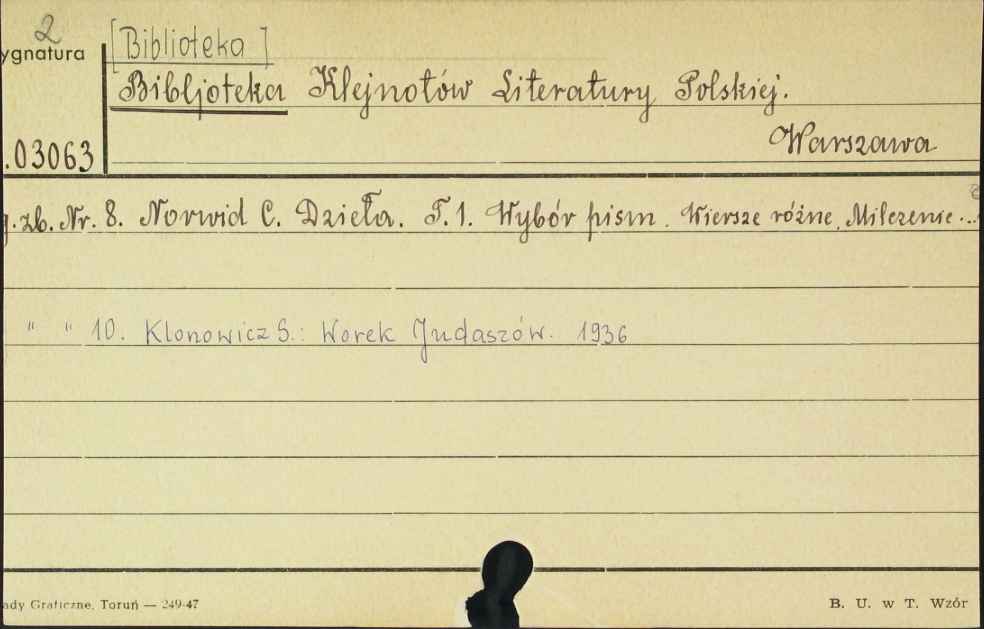 2
ygnatura
[Biblioteka]
Bibljoteka Klejnotów Literatury Polskiej.
.03063
Warszawa
g. zb. Nr. 8. Norwid C. Dzieła. T. 1. Wybór pism. Wiersze różne, Milczenie...
" " 10. Klonowicz S.: Worek Judaszów. 1936
ady Graficzne, Toruń — 249-47
B. U. w T. Wzór